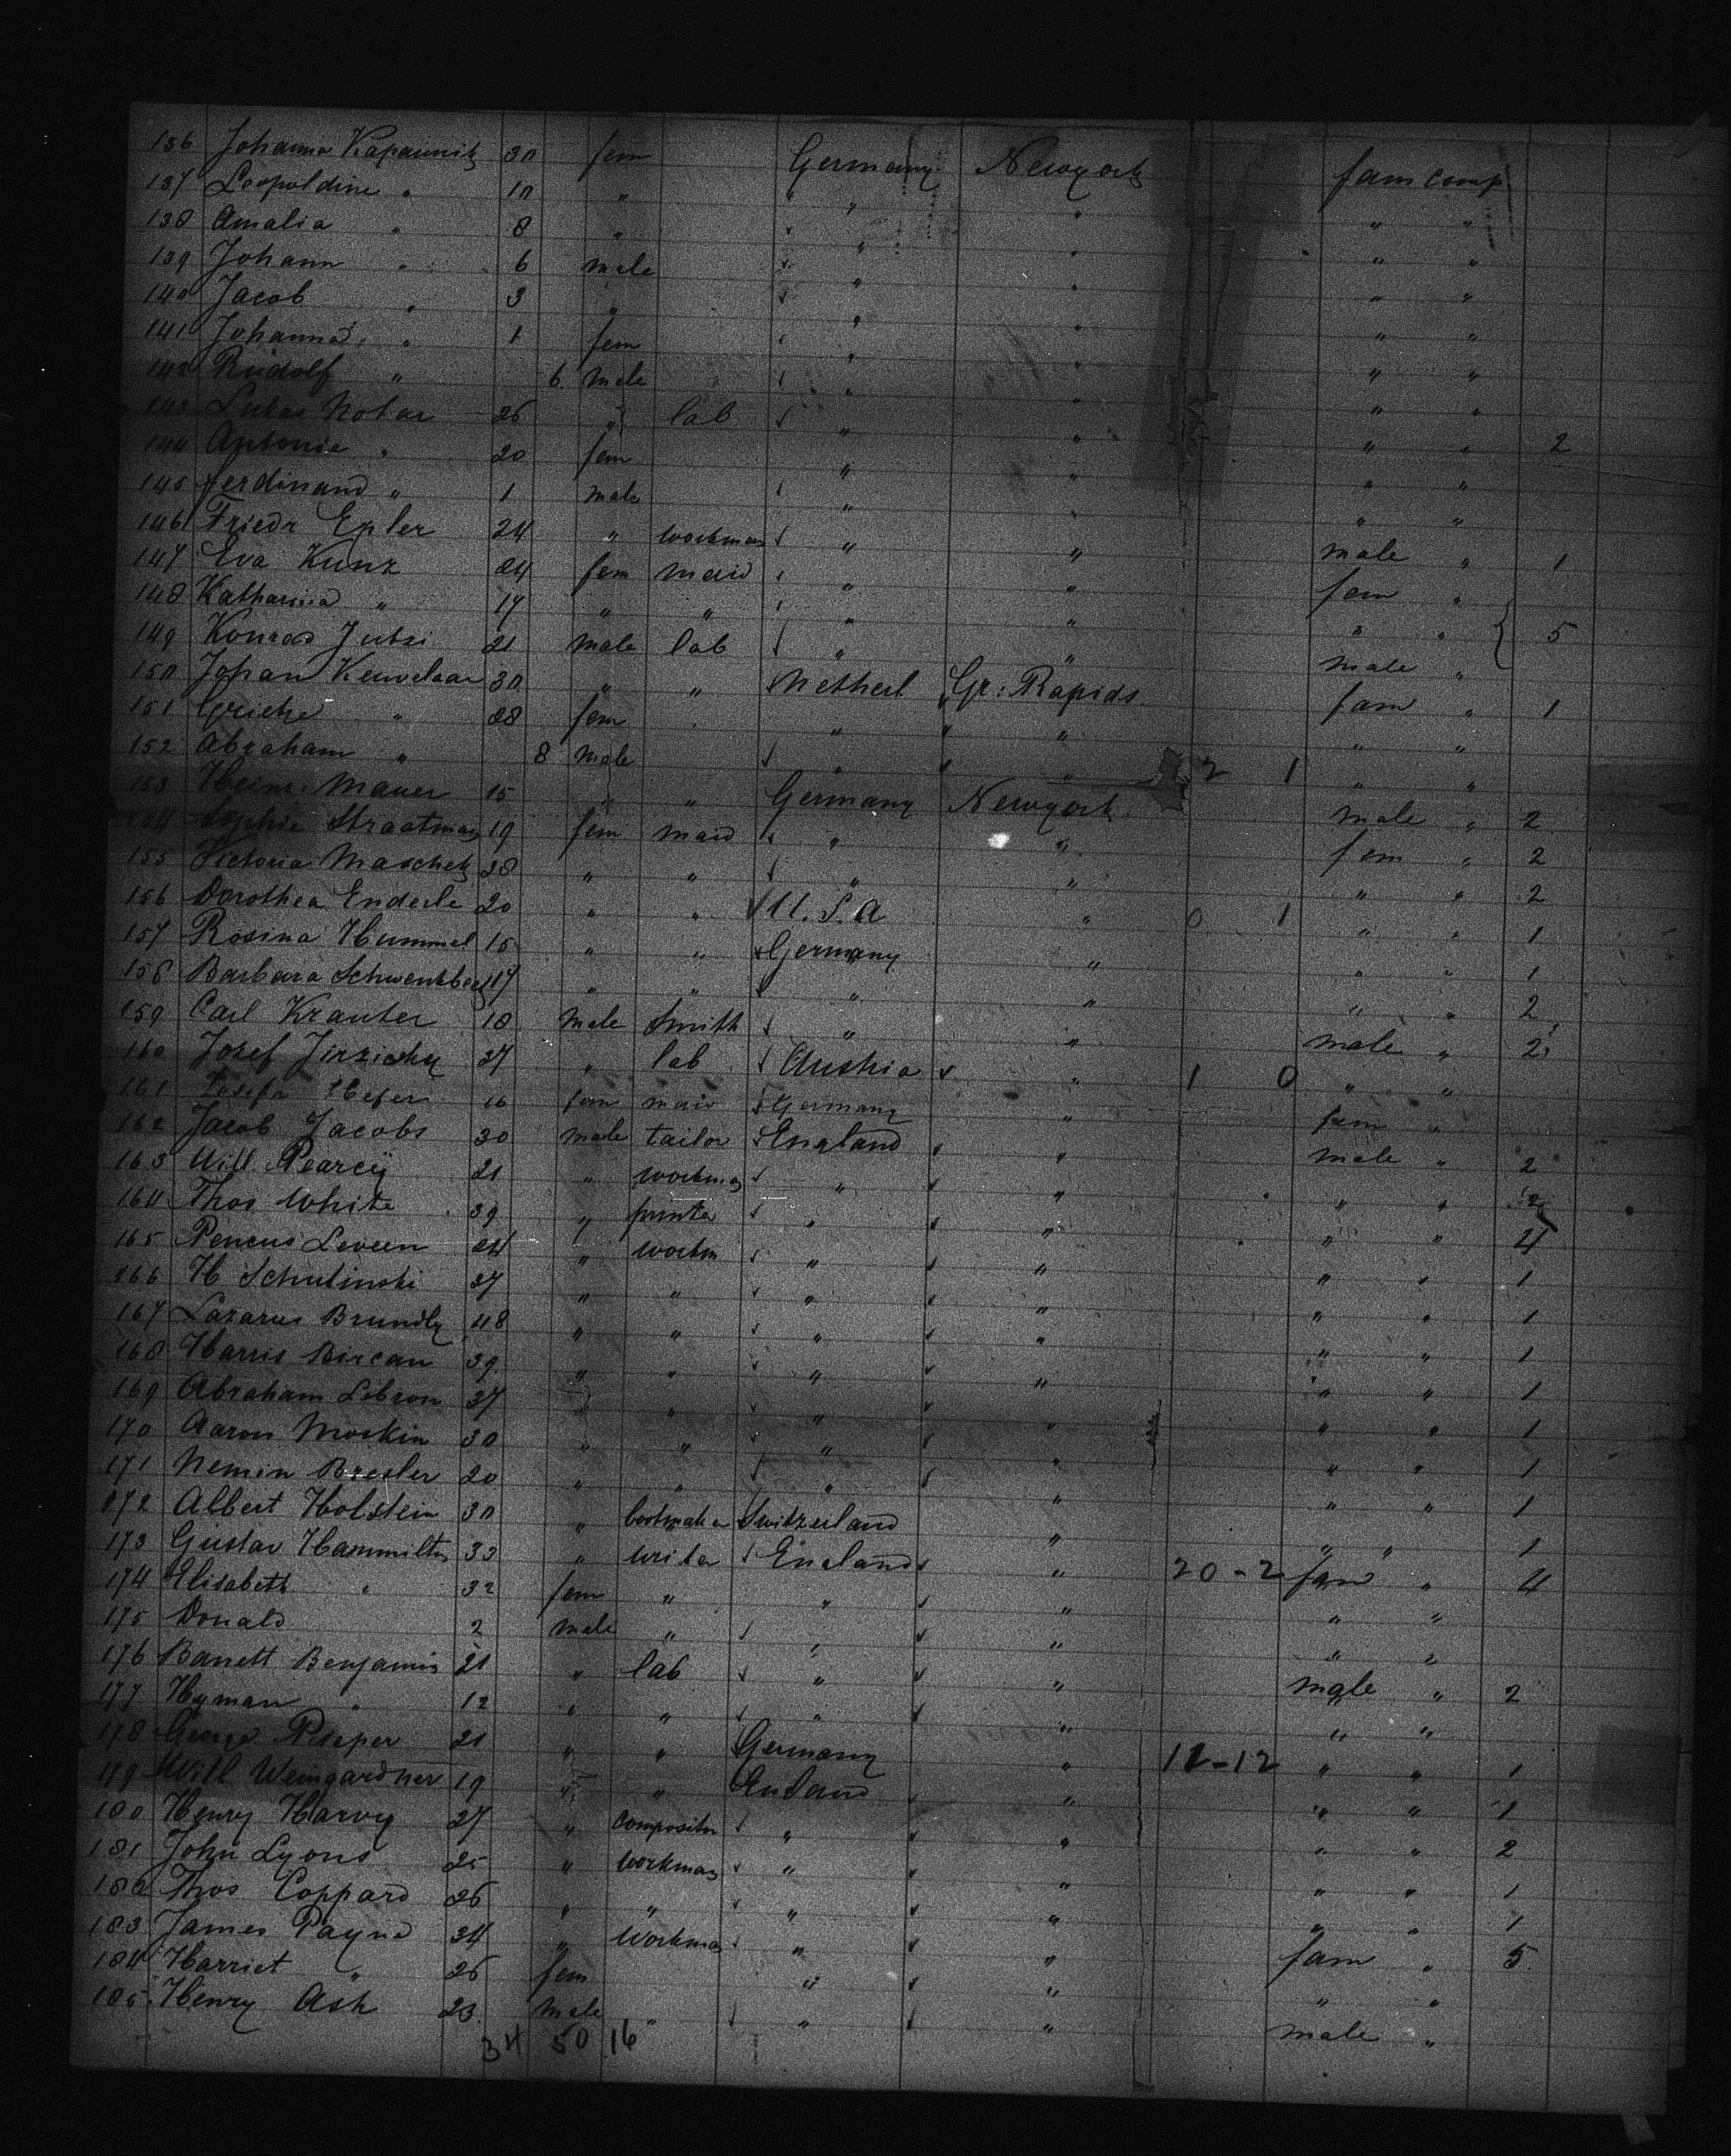 136 Johanna Kapaunitz 30 fem Germany Newyork fam comp
137 Leopoldine " 10 " " " " "
138 Amalia " 8 " " " " "
139 Johann " 6 male " " " "
140 Jacob " 3 " " " " "
141 Johanna " 1 fem " " " "
142 Rudolf " 6 male " " " "
143 Lukas Notar 26 " lab " " " " 2
144 Antonie " 20 fem " " " "
145 Ferdinand " 1 male " " " "
146 Friedr Epler 24 " workman " " male " 1
147 Eva Kunz 24 fem maid " " fem "
148 Katharina " 17 " " " " " " 5
149 Konrad Jutzi 21 male lab " " male "
150 Johan Keuvelaar 30 " " Netherl Gr: Rapids fam " 1
151 Grietje " 28 fem " " " "
152 Abraham " 8 male " " 2 1 " "
153 Heinr. Mauer 15 " " Germany Newyork male " 2
154 Sophie Straatman 19 fem maid " " fem " 2
155 Victoria Maschek 28 " " " " " " 2
156 Dorothea Enderle 20 " " U. S. A " 0 1 " " 1
157 Rosina Hummel 15 " " Germany " " " 1
158 Barbara 17 " " " " " " 2
159 Carl Krauter 18 male Smith " " male " 2
160 Josef Jirzicky 27 " lab Austria " 1 0 " "
161 Josefa Hefer 16 fem maid Germany " fem "
162 Jacob Jacobs 30 male tailor England " male " 2
163 Will. Pearcy 21 " workman " " " " 2
164 Thos White 39 " printer " " " " 4
165 Pencus Leveen 24 " workm " " " " 1
166 H Schulinski 27 " " " " " " 1
167 Lazarus 48 " " " " " " 1
168 Harris Bircan 39 " " " " " " 1
169 Abraham Lebron 37 " " " " " " 1
170 Aaron Moskin 30 " " " " " " 1
171 Nemin Bresler 20 " " " " " " 1
172 Albert Holstein 30 " bootmaker Switzerland " " " 1
173 Gustav Hammilton 33 " writer England " 20-2 fam " 4
174 Elisabeth " 32 fem " " " " "
175 Donald 2 male " " " " "
176 Banett Benjamin 21 " lab " " male " 2
177 Hyman " 12 " " " " " "
178 George Pieper 21 " " Germany " 12-12 " " 1
179 Will Weingardner 19 " " England " " " 1
180 Henry Harvy 27 " compositor " " " " 2
181 John Lyons 25 " workman " " " " 1
182 Thos Coppard 26 " " " " " " 1
183 James Payne 34 " workman " " fam " 5
184 Harriet " 26 fem " " " "
185 Henry Ash 23 male " " " male "
34 50 16